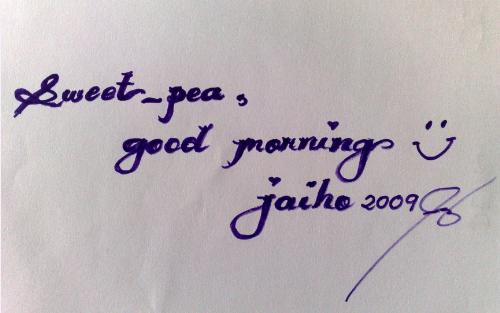 Sweet-pea,
good morning
jaiho 2009